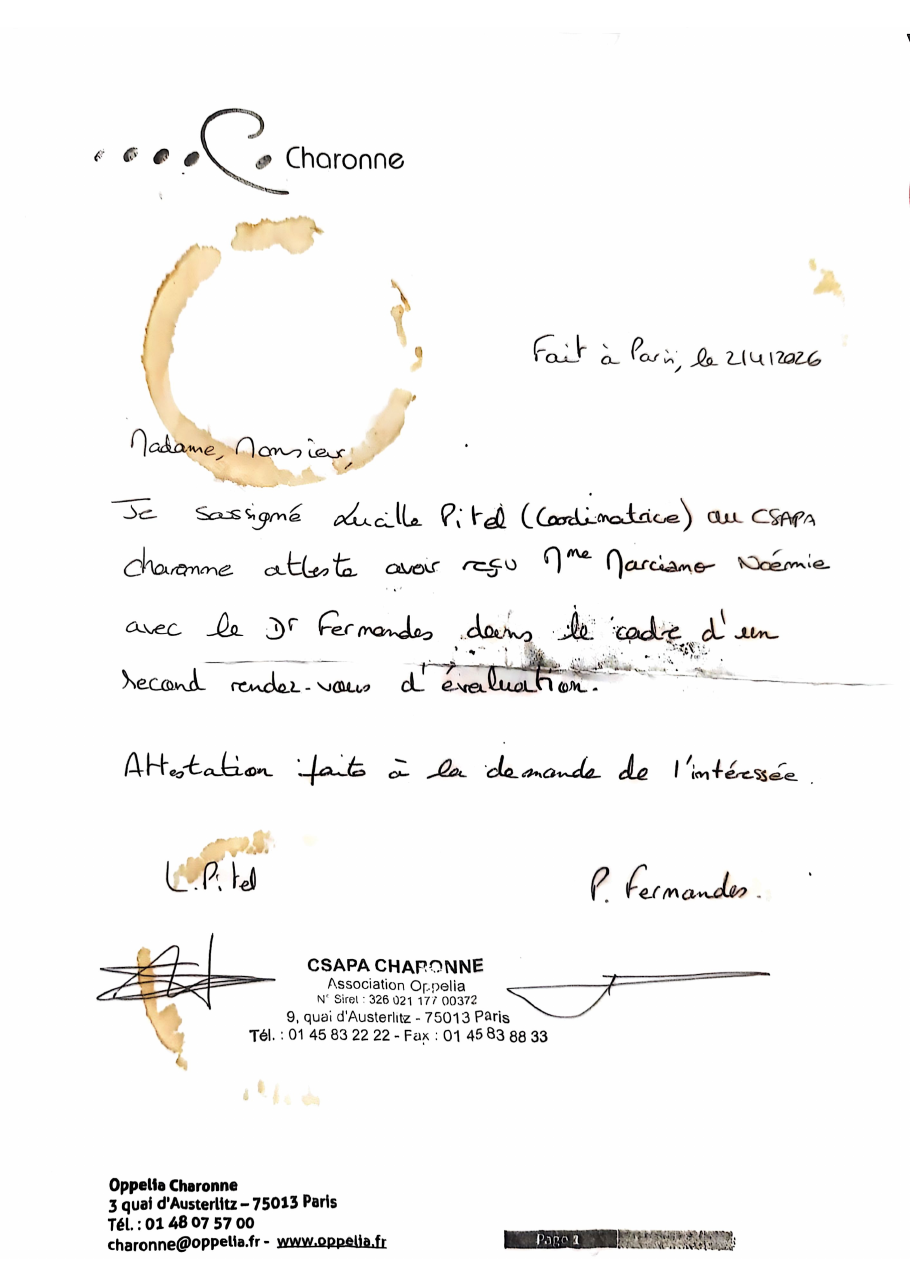 Charonne
Fait à Paris, le 2/4/2026
Madame, Monsieur,
Je sassigné Lucille Pitel (Coordinatrice) au CSAPA
charonne atteste avoir reçu Mme Marciano Noémie
avec le Dr Fernandes dans le cadre d'un
second rendez-vous d'évaluation.
Attestation faite à la demande de l'intéressée.
L.Pitel
P. Fernandes.
CSAPA CHARONNE
Association Oppelia
N° Siret : 326 021 177 00372
9, quai d'Austerlitz - 75013 Paris
Tél. : 01 45 83 22 22 - Fax : 01 45 83 88 33
Oppelia Charonne
3 quai d'Austerlitz – 75013 Paris
Tél. : 01 48 07 57 00
charonne@oppelia.fr - www.oppelia.fr
Page 1